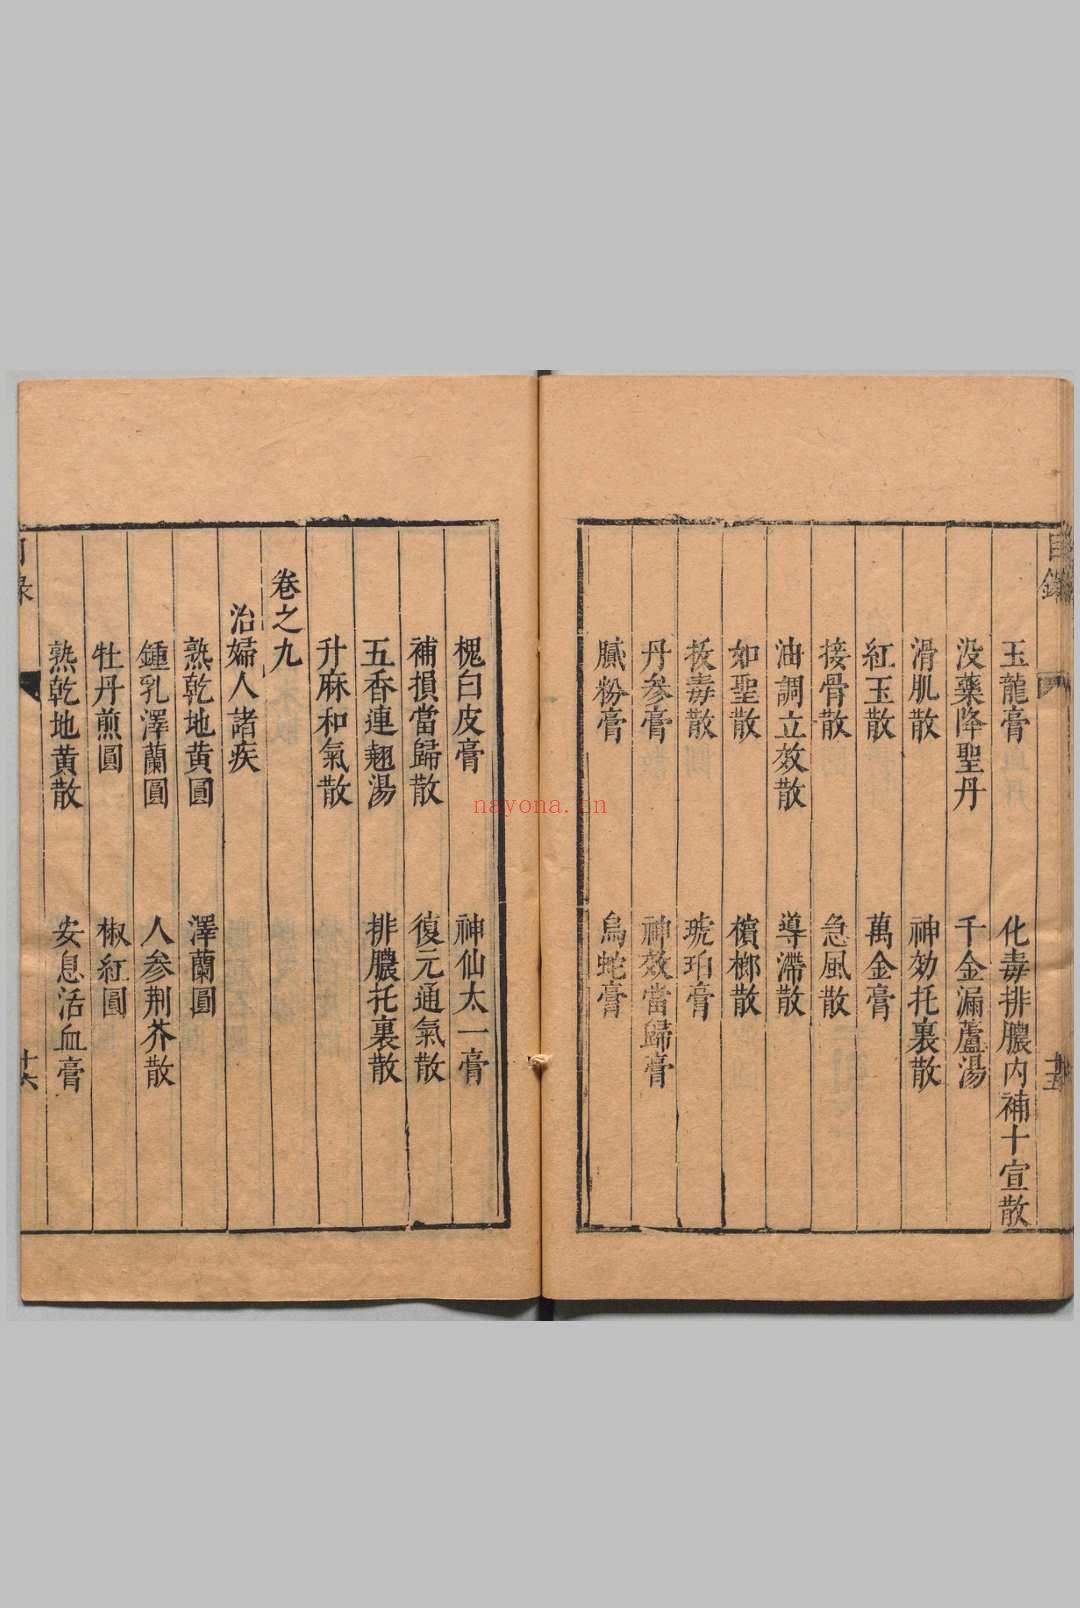 目錄
十五
玉龍膏
化毒排膿内補十宣散
没藥降聖丹
千金漏蘆湯
滑肌散
神効托裏散
紅玉散
萬金膏
接骨散
急風散
油調立效散
導滯散
如聖散
檳榔散
拔毒散
琥珀膏
丹參膏
神效當歸膏
膩粉膏
烏蛇膏
槐白皮膏
神仙太一膏
補損當歸散
復元通氣散
五香連翹湯
排膿托裏散
升麻和氣散
卷之九
治婦人諸疾
熟乾地黄圓
澤蘭圓
鍾乳澤蘭圓
人參荆芥散
牡丹煎圓
椒紅圓
熟乾地黄散
安息活血膏
目录
十六
nayona.cn